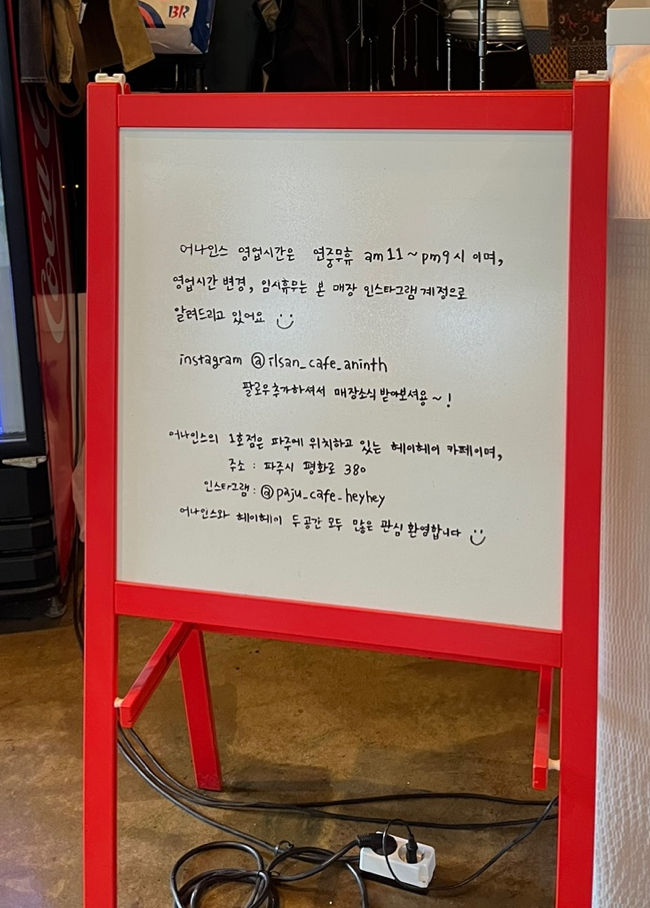 BR
Coca-C
어나인스 영업시간은 연중무휴 am11~pm9시 이며,
영업시간 변경, 임시휴무는 본 매장 인스타그램계정으로
알려드리고 있어요
instagram @ilsan_cafe_aninth
팔로우추가하셔서 매장소식받아보셔용~!
어나인스의 1호점은 파주에 위치하고 있는 헤이헤이 카페이며,
주소 : 파주시 평화로 380
인스타그램 : @paju_cafe_heyhey
어나인스와 헤이헤이 두공간 모두 많은 관심 환영합니다